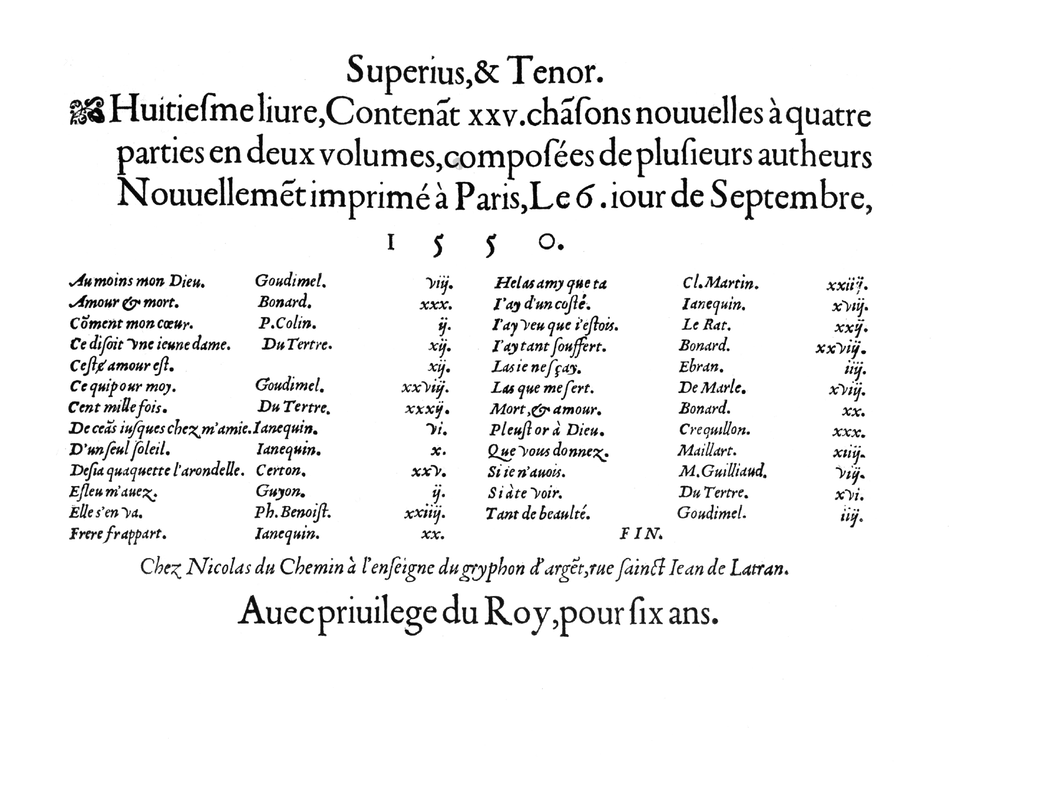 Superius,& Tenor.
Huitieſme liure,Contenãt xxv.chãſons nouuelles à quatre
parties en deux volumes,compoſées de pluſieurs autheurs
Nouuellemẽt imprimé à Paris,Le 6 .iour de Septembre,
1 5 5 0.
Au moins mon Dieu. Goudimel. viĳ.
Amour & mort. Bonard. xxx.
Cõment mon cœur. P.Colin. ij.
Ce diſoit vne ieune dame. Du Tertre. xij.
Ceſt' amour eſt. xij.
Ce qui pour moy. Goudimel. xxviij.
Cent mille fois. Du Tertre. xxxij.
De ceãs iuſques chez m'amie. Ianequin. vi.
D'un ſeul ſoleil. Ianequin. x.
Deſia quaquette l'arondelle. Certon. xxv.
Eſleu m'auez. Guyon. ij.
Elle s'en va. Ph.Benoiſt. xxiiij.
Frere frappart. Ianequin. xx.
Helas amy que ta Cl.Martin. xxiiij.
I'ay d'un coſté. Ianequin. xviij.
I'ay veu que i'eſtois. Le Rat. xxij.
I'ay tant ſouffert. Bonard. xxviij.
Las ie ne ſçay. Ebran. iiij.
Las que me ſert. De Marle. xviij.
Mort,& amour. Bonard. xx.
Pleuſt or à Dieu. Crequillon. xxx.
Que vous donnez. Maillart. xiiij.
Si ie n'auois. M.Guilliaud. vij.
Si à te voir. Du Tertre. xvi.
Tant de beaulté. Goudimel. iiij.
FIN.
Chez Nicolas du Chemin à l'enſeigne du gryphon d'argẽt,rue ſainct Iean de Latran.
Auec priuilege du Roy,pour ſix ans.